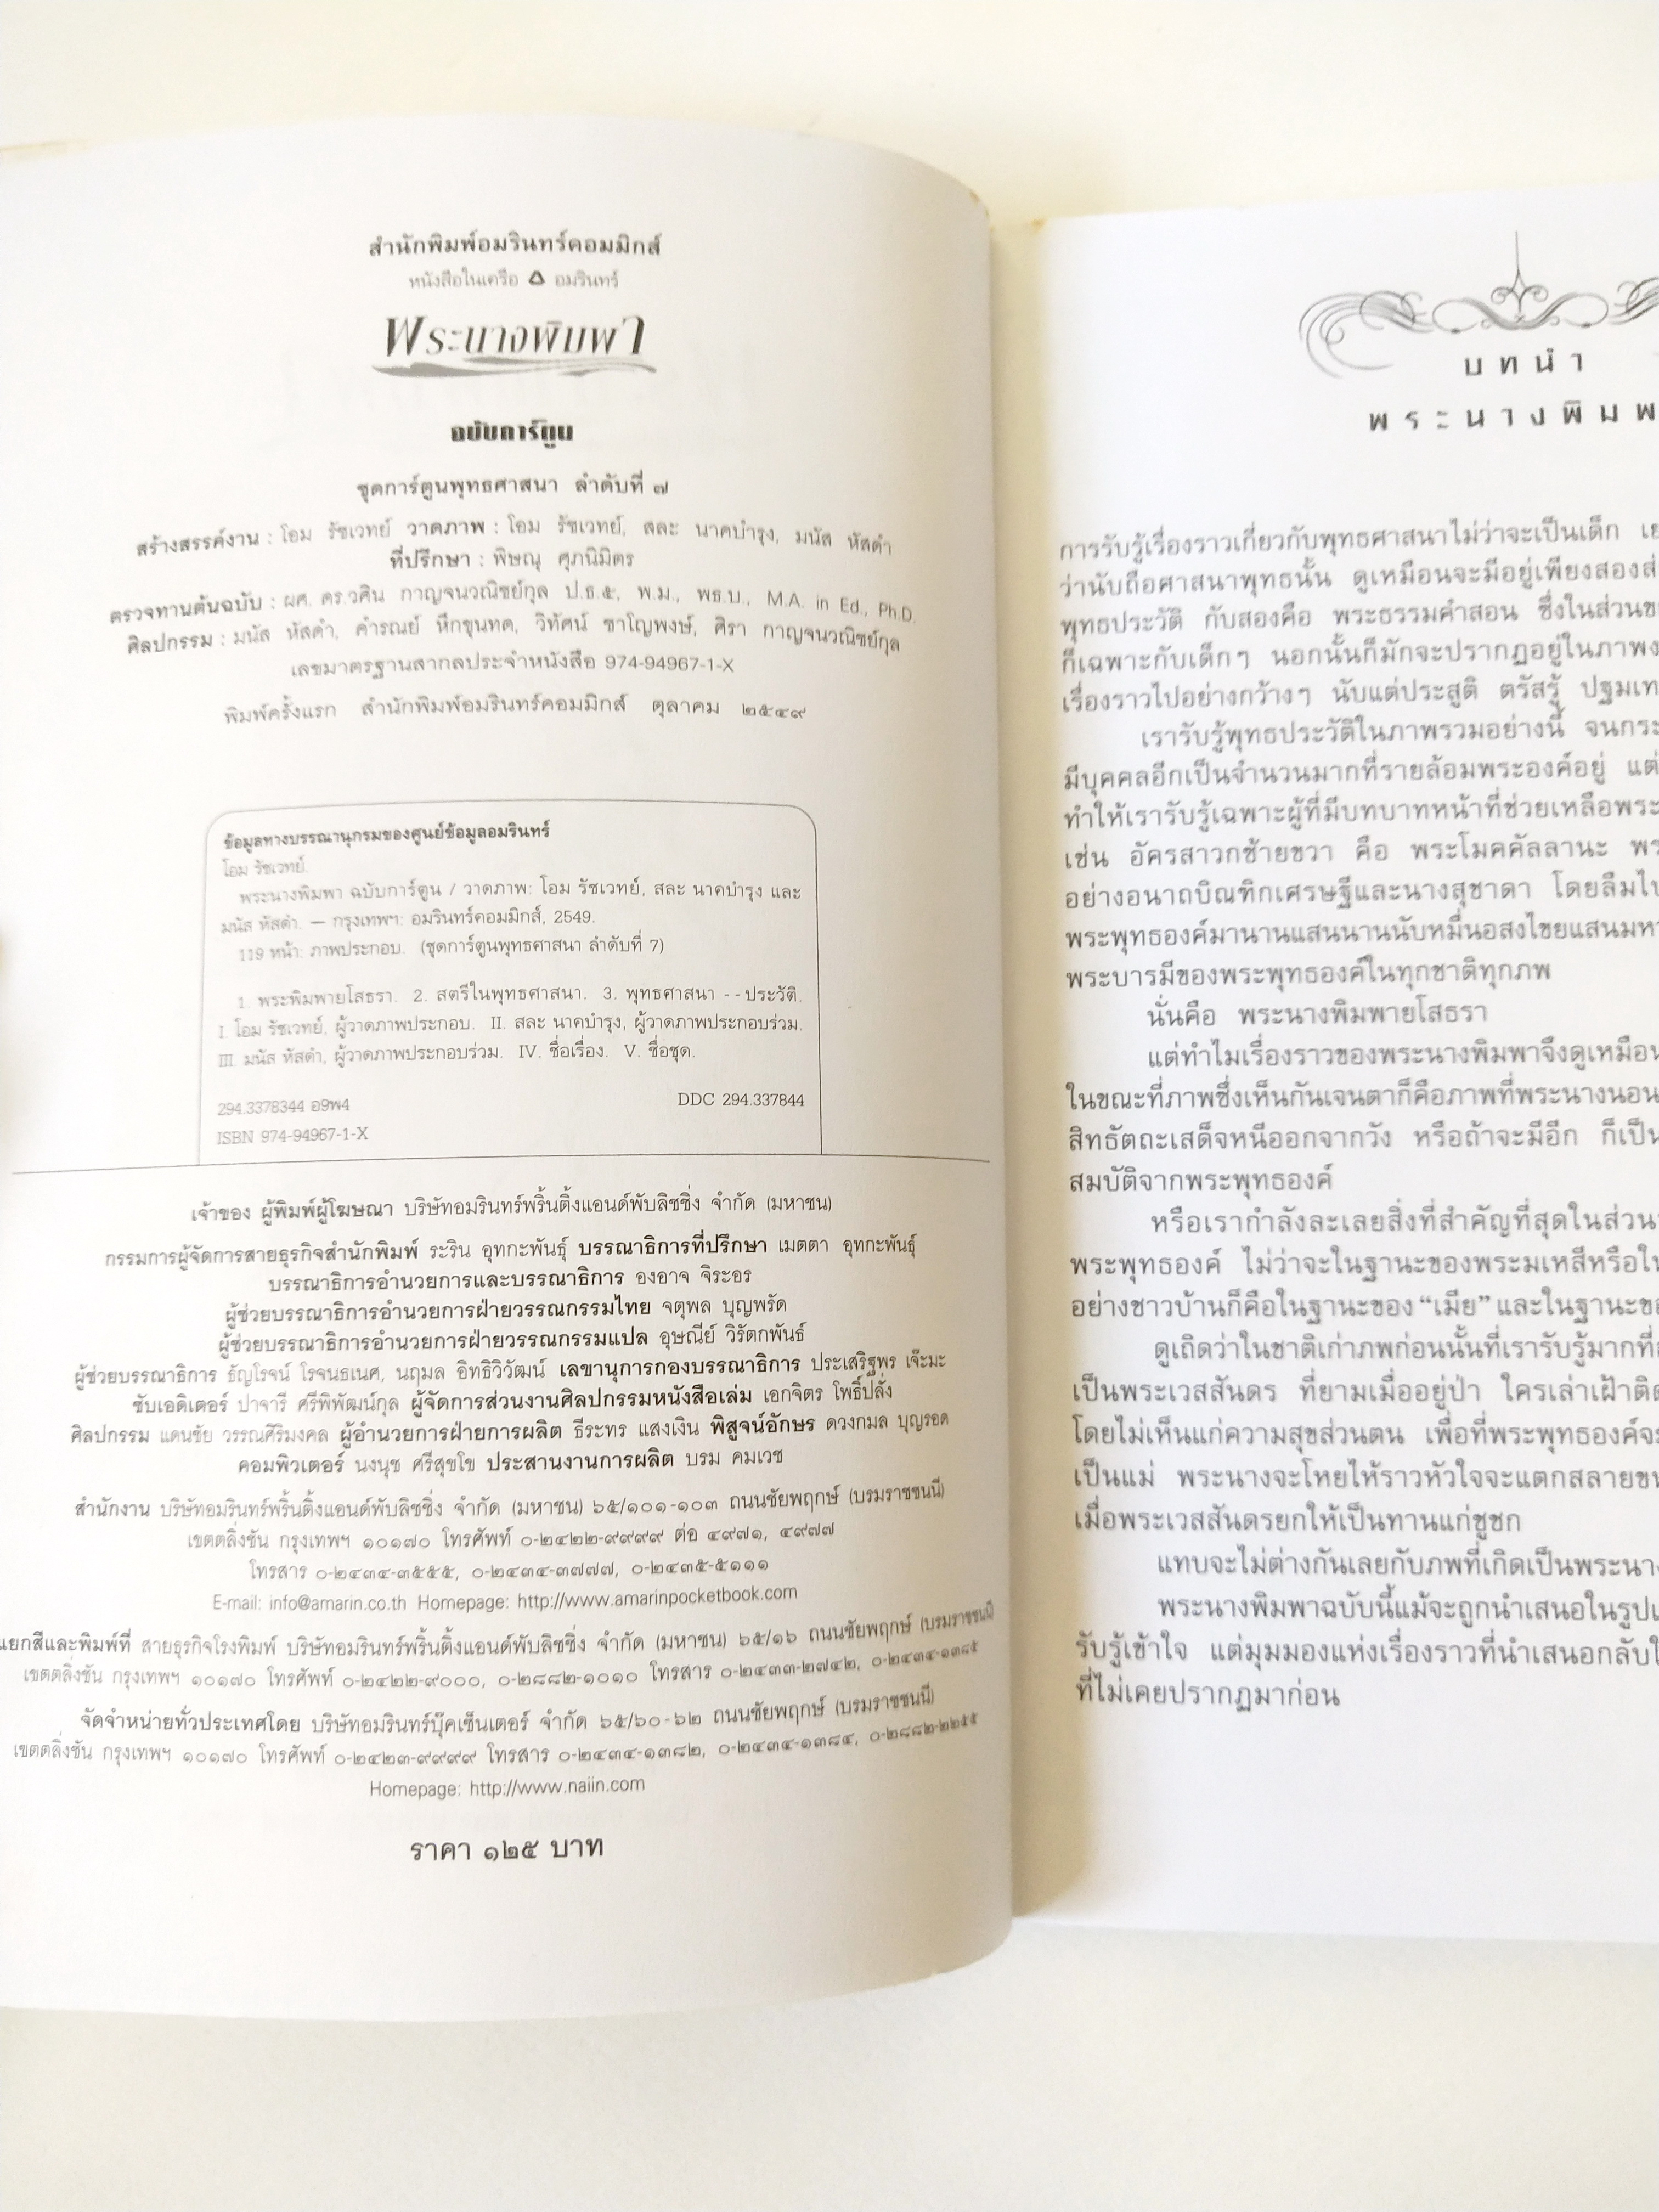 สำนักพิมพ์อมรินทร์คอมมิกส์
หนังสือในเครือ อมรินทร์
พระนางพิมพา
ฉบับการ์ตูน
ชุดการ์ตูนพุทธศาสนา ลำดับที่ ๗
สร้างสรรค์งาน : โอม รัชเวทย์ วาดภาพ : โอม รัชเวทย์, สละ นาคบำรุง, มนัส หัสดำ
ที่ปรึกษา : พิษณุ ศุภนิมิตร
ตรวจทานต้นฉบับ : ผศ. ดร.วศิน กาญจนวณิชย์กุล ป.ธ.๕, พ.ม., พธ.บ., M.A. in Ed., Ph.D.
ศิลปกรรม : มนัส หัสดำ, คำรณย์ หึกขุนทด, วิทัศน์ ชาโญพงษ์, ศิรา กาญจนวณิชย์กุล
เลขมาตรฐานสากลประจำหนังสือ 974-94967-1-X
พิมพ์ครั้งแรก สำนักพิมพ์อมรินทร์คอมมิกส์ ตุลาคม ๒๕๔๙
ข้อมูลทางบรรณานุกรมของศูนย์ข้อมูลอมรินทร์
โอม รัชเวทย์.
พระนางพิมพา ฉบับการ์ตูน / วาดภาพ: โอม รัชเวทย์, สละ นาคบำรุง และ
มนัส หัสดำ. — กรุงเทพฯ: อมรินทร์คอมมิกส์, 2549.
119 หน้า: ภาพประกอบ. (ชุดการ์ตูนพุทธศาสนา ลำดับที่ 7)
1. พระพิมพายโสธรา. 2. สตรีในพุทธศาสนา. 3. พุทธศาสนา - - ประวัติ.
I. โอม รัชเวทย์, ผู้วาดภาพประกอบ. II. สละ นาคบำรุง, ผู้วาดภาพประกอบร่วม.
III. มนัส หัสดำ, ผู้วาดภาพประกอบร่วม. IV. ชื่อเรื่อง. V. ชื่อชุด.
294.3378344 อ9พ4 DDC 294.337844
ISBN 974-94967-1-X
เจ้าของ ผู้พิมพ์ผู้โฆษณา บริษัทอมรินทร์พริ้นติ้งแอนด์พับลิชชิ่ง จำกัด (มหาชน)
กรรมการผู้จัดการสายธุรกิจสำนักพิมพ์ ระริน อุทกะพันธุ์ บรรณาธิการที่ปรึกษา เมตตา อุทกะพันธุ์
บรรณาธิการอำนวยการและบรรณาธิการ องอาจ จิระอร
ผู้ช่วยบรรณาธิการอำนวยการฝ่ายวรรณกรรมไทย จตุพล บุญพรัด
ผู้ช่วยบรรณาธิการอำนวยการฝ่ายวรรณกรรมแปล อุษณีย์ วิรัตกพันธ์
ผู้ช่วยบรรณาธิการ ธัญโรจน์ โรจนธเนศ, นฤมล อิทธิวิวัฒน์ เลขานุการกองบรรณาธิการ ประเสริฐพร เจ๊ะมะ
ซับเอดิเตอร์ ปาจารี ศรีพิพัฒน์กุล ผู้จัดการส่วนงานศิลปกรรมหนังสือเล่ม เอกจิตร โพธิ์ปลั่ง
ศิลปกรรม แดนชัย วรรณศิริมงคล ผู้อำนวยการฝ่ายการผลิต ธีระทร แสงเงิน พิสูจน์อักษร ดวงกมล บุญรอด
คอมพิวเตอร์ นงนุช ศรีสุขโข ประสานงานการผลิต บรม คมเวช
สำนักงาน บริษัทอมรินทร์พริ้นติ้งแอนด์พับลิชชิ่ง จำกัด (มหาชน) ๖๕/๑๐๑-๑๐๓ ถนนชัยพฤกษ์ (บรมราชชนนี)
เขตตลิ่งชัน กรุงเทพฯ ๑๐๑๗๐ โทรศัพท์ ๐-๒๔๒๒-๙๙๙๙ ต่อ ๔๙๗๑, ๔๙๗๗
โทรสาร ๐-๒๔๓๔-๓๕๕๕, ๐-๒๔๓๔-๓๗๗๗, ๐-๒๔๓๕-๕๑๑๑
E-mail: info@amarin.co.th Homepage: http://www.amarinpocketbook.com
แยกสีและพิมพ์ที่ สายธุรกิจโรงพิมพ์ บริษัทอมรินทร์พริ้นติ้งแอนด์พับลิชชิ่ง จำกัด (มหาชน) ๖๕/๑๖ ถนนชัยพฤกษ์ (บรมราชชนนี)
เขตตลิ่งชัน กรุงเทพฯ ๑๐๑๗๐ โทรศัพท์ ๐-๒๔๒๒-๙๐๐๐, ๐-๒๘๘๒-๑๐๑๐ โทรสาร ๐-๒๔๓๓-๒๗๔๒, ๐-๒๔๓๔-๑๓๘๕
จัดจำหน่ายทั่วประเทศโดย บริษัทอมรินทร์บุ๊คเซ็นเตอร์ จำกัด ๖๕/๖๐-๖๒ ถนนชัยพฤกษ์ (บรมราชชนนี)
เขตตลิ่งชัน กรุงเทพฯ ๑๐๑๗๐ โทรศัพท์ ๐-๒๔๒๓-๙๙๙๙ โทรสาร ๐-๒๔๓๔-๑๓๘๒, ๐-๒๔๓๔-๑๓๘๔, ๐-๒๘๘๒-๒๒๕๕
Homepage: http://www.naiin.com
ราคา ๑๒๕ บาท
บทนำ
พระนางพิมพ
การรับรู้เรื่องราวเกี่ยวกับพุทธศาสนาไม่ว่าจะเป็นเด็ก เย
ว่านับถือศาสนาพุทธนั้น ดูเหมือนจะมีอยู่เพียงสองส่
พุทธประวัติ กับสองคือ พระธรรมคำสอน ซึ่งในส่วนข
ก็เฉพาะกับเด็กๆ นอกนั้นก็มักจะปรากฏอยู่ในภาพง
เรื่องราวไปอย่างกว้างๆ นับแต่ประสูติ ตรัสรู้ ปฐมเท
เรารับรู้พุทธประวัติในภาพรวมอย่างนี้ จนกระ
มีบุคคลอีกเป็นจำนวนมากที่รายล้อมพระองค์อยู่ แต่
ทำให้เรารับรู้เฉพาะผู้ที่มีบทบาทหน้าที่ช่วยเหลือพระ
เช่น อัครสาวกซ้ายขวา คือ พระโมคคัลลานะ พร
อย่างอนาถบิณฑิกเศรษฐีและนางสุชาดา โดยลืมไป
พระพุทธองค์มานานแสนนานนับหมื่นอสงไขยแสนมหา
พระบารมีของพระพุทธองค์ในทุกชาติทุกภพ
นั่นคือ พระนางพิมพายโสธรา
แต่ทำไมเรื่องราวของพระนางพิมพาจึงดูเหมือน
ในขณะที่ภาพซึ่งเห็นกันเจนตาก็คือภาพที่พระนางนอน
สิทธัตถะเสด็จหนีออกจากวัง หรือถ้าจะมีอีก ก็เป็น
สมบัติจากพระพุทธองค์
หรือเรากำลังละเลยสิ่งที่สำคัญที่สุดในส่วน
พระพุทธองค์ ไม่ว่าจะในฐานะของพระมเหสีหรือใน
อย่างชาวบ้านก็คือในฐานะของ “เมีย” และในฐานะขอ
ดูเถิดว่าในชาติเก่าภพก่อนนั้นที่เรารับรู้มากที่
เป็นพระเวสสันดร ที่ยามเมื่ออยู่ป่า ใครเล่าเฝ้าติด
โดยไม่เห็นแก่ความสุขส่วนตน เพื่อที่พระพุทธองค์จะ
เป็นแม่ พระนางจะโหยไห้ราวหัวใจจะแตกสลายขน
เมื่อพระเวสสันดรยกให้เป็นทานแก่ชูชก
แทบจะไม่ต่างกันเลยกับภพที่เกิดเป็นพระนาง
พระนางพิมพาฉบับนี้แม้จะถูกนำเสนอในรูปแ
รับรู้เข้าใจ แต่มุมมองแห่งเรื่องราวที่นำเสนอกลับใ
ที่ไม่เคยปรากฏมาก่อน